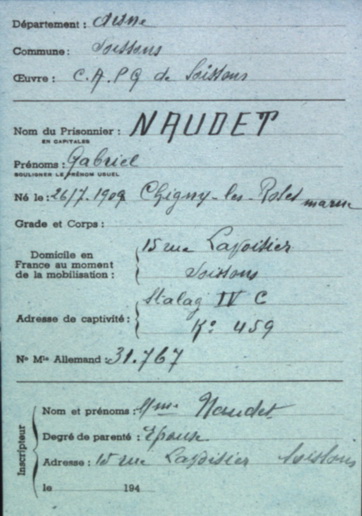 Département : Aisne
Commune : Soissons
Œuvre : C.A.P.G de Soissons
Nom du Prisonnier : NAUDET
EN CAPITALES
Prénoms : Gabriel
SOULIGNER LE PRÉNOM USUEL
Né le : 26/7.1909 Chigny-les-Roses marne
Grade et Corps :
Domicile en France au moment de la mobilisation :
15 rue Lavoisier
Soissons
Adresse de captivité :
Stalag IV C
K° 459
N° Mle Allemand : 31.767
Inscripteur
Nom et prénoms : Mme Naudet
Degré de parenté : Epouse
Adresse : 15 rue Lavoisier Soissons
le 194